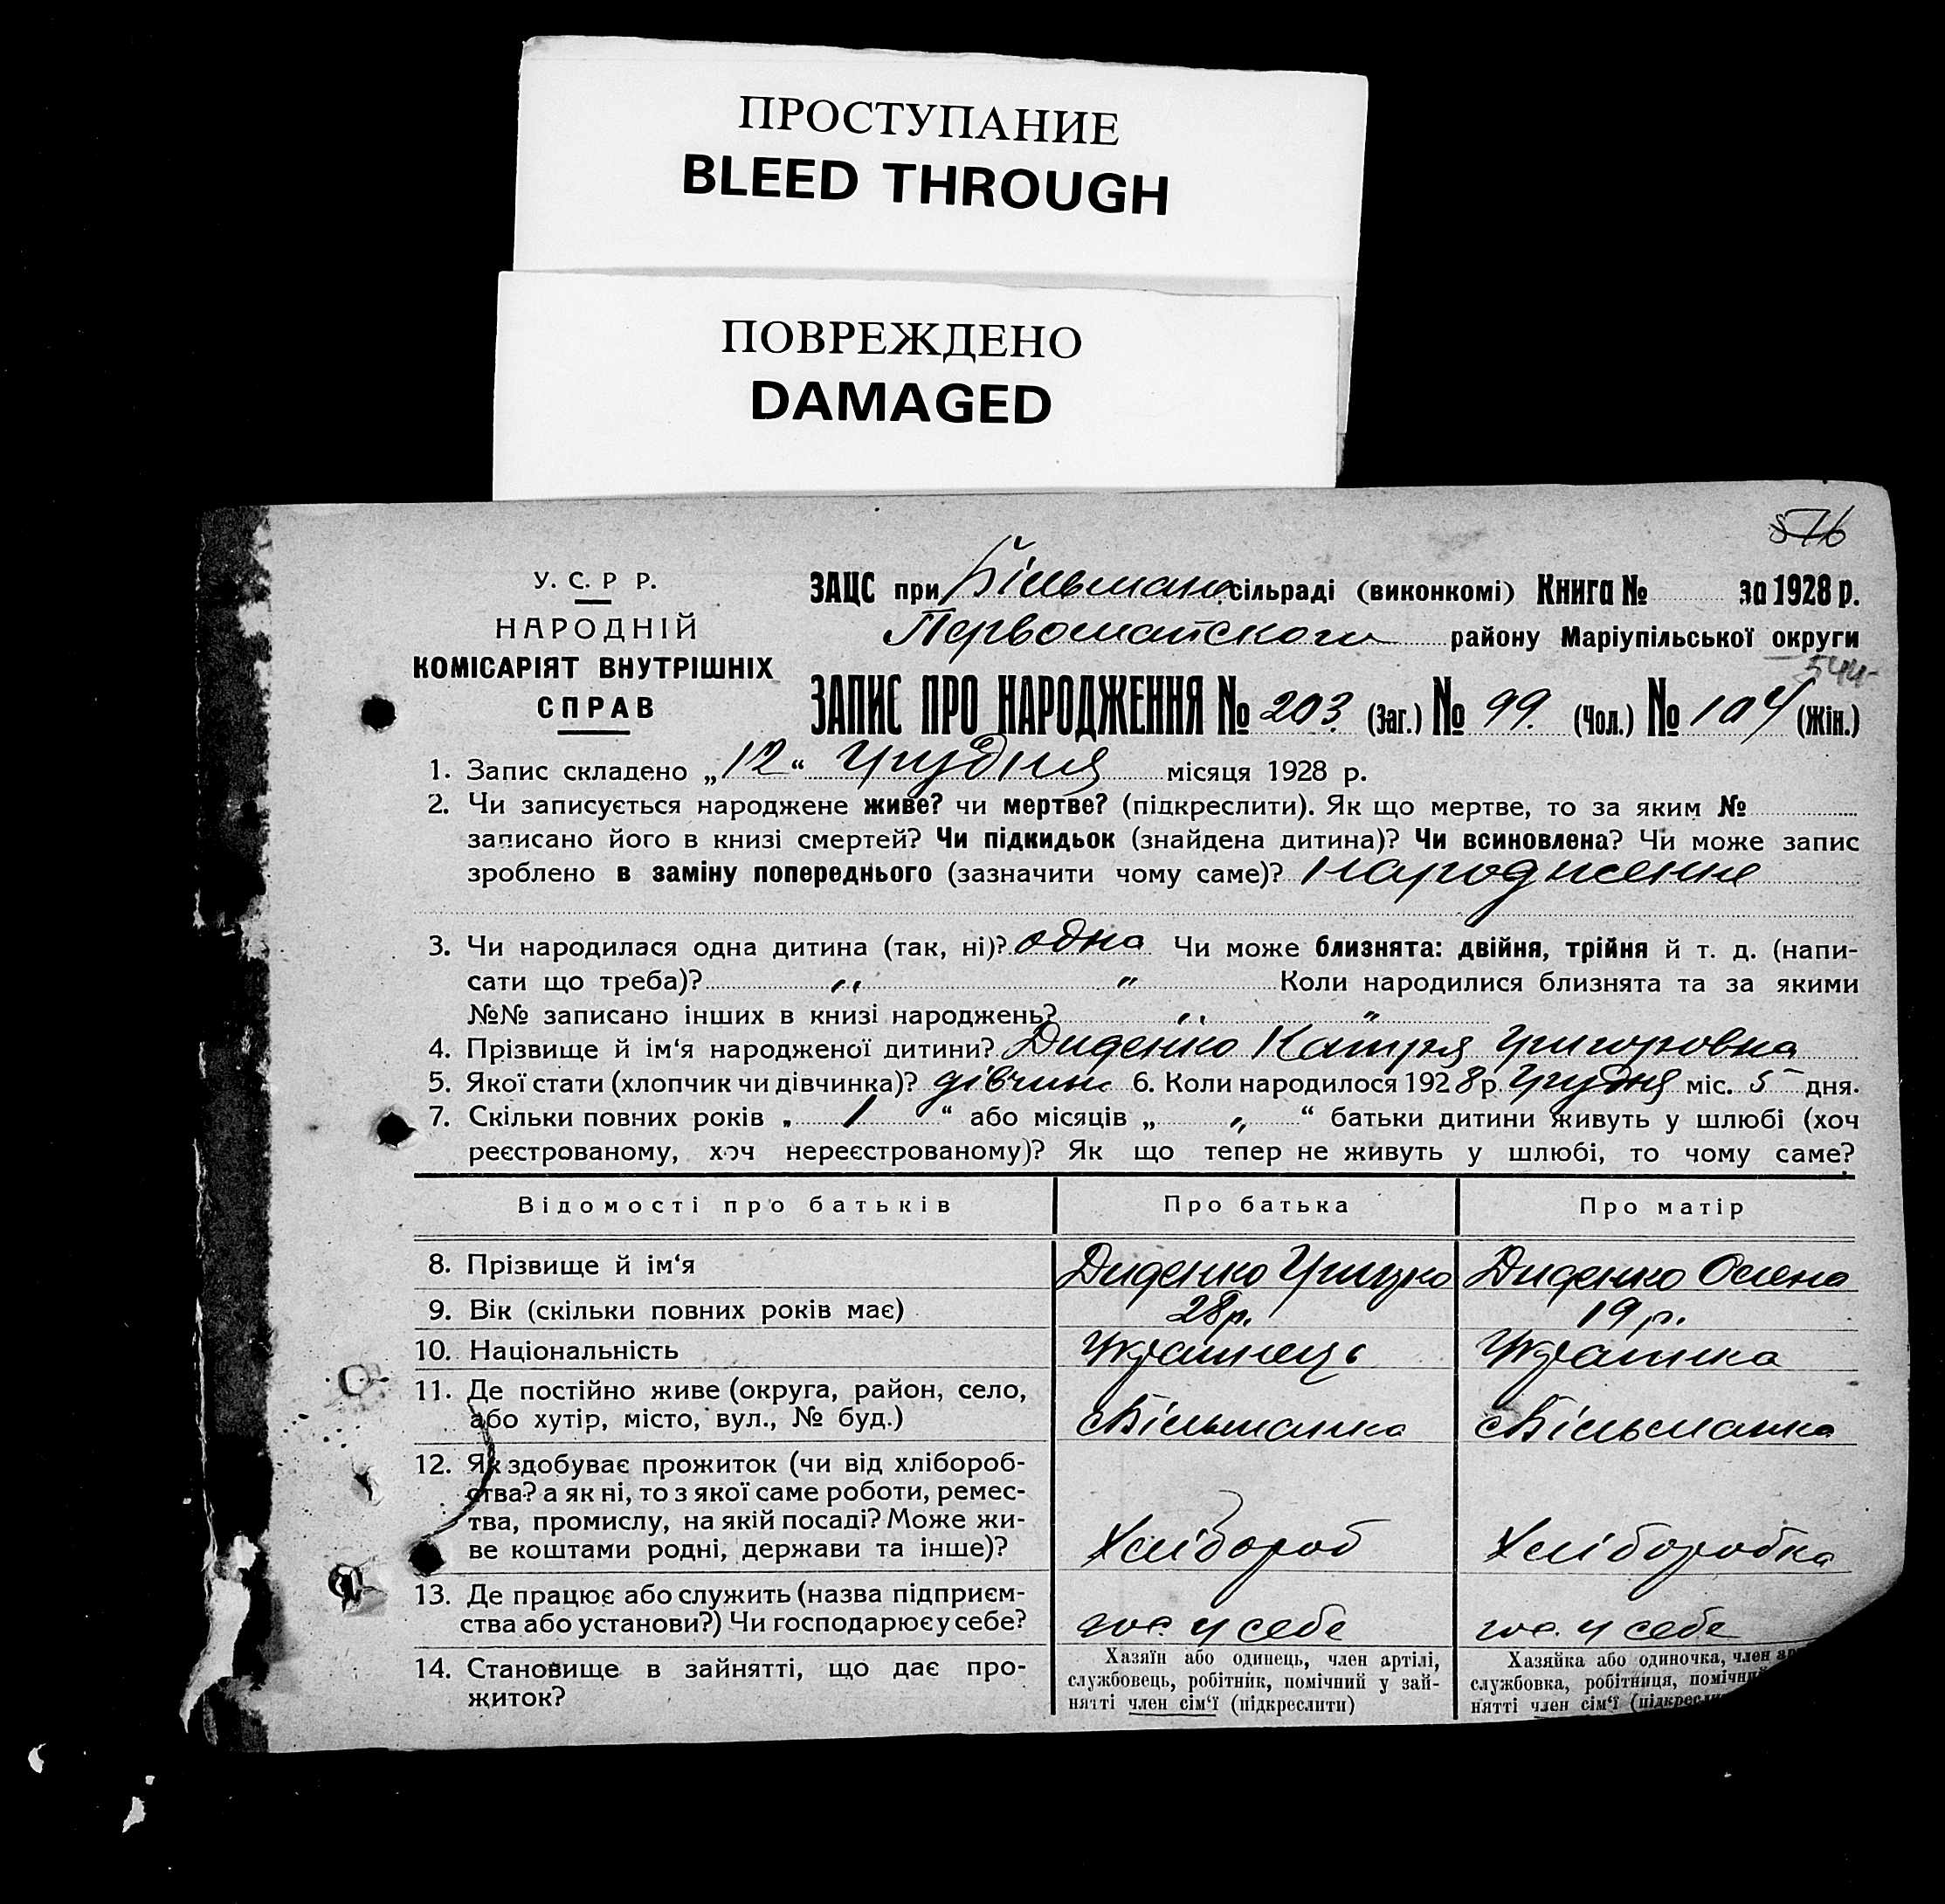 ПРОСТУПАНИЕ
BLEED THROUGH
ПОВРЕЖДЕНО
DAMAGED
576
У. С. Р Р.
НАРОДНІЙ
КОМІСАРІЯТ ВНУТРІШНІХ
СПРАВ
ЗАЦС при Більман. сільраді (виконкомі) Книга № за 1928 р.
Первомайского району Маріупільської округи
544
ЗАПИС ПРО НАРОДЖЕННЯ № 203. (Заг.) № 99. (Чол.) № 104 (Жін.)
1. Запис складено „12“ Грудня місяця 1928 р.
2. Чи записується народжене живе? чи мертве? (підкреслити). Як що мертве, то за яким №
записано його в книзі смертей? Чи підкидьок (знайдена дитина)? Чи всиновлена? Чи може запис
зроблено в заміну попереднього (зазначити чому саме)? народження
3. Чи народилася одна дитина (так, ні)? одна Чи може близнята: двійня, трійня й т. д. (напи-
сати що треба)? „ „ Коли народилися близнята та за якими
№№ записано інших в книзі народжень? „ „
4. Прізвище й ім‘я народженої дитини? Диденко Катря Григоровна
5. Якої стати (хлопчик чи дівчинка)? дівчин 6. Коли народилося 1928 р. Грудня міс. 5 дня.
7. Скільки повних років „ 1 “ або місяців „ „ “ батьки дитини живуть у шлюбі (хоч
реєстрованому, хоч нереєстрованому)? Як що тепер не живуть у шлюбі, то чому саме?
Відомості про батьків Про батька Про матір
8. Прізвище й ім‘я Диденко Грицко Диденко Олена
9. Вік (скільки повних років має) 28 р. 19 р.
10. Національність Українець Українка
11. Де постійно живе (округа, район, село,
або хутір, місто, вул., № буд.) с Більманка с Більманка
12. Як здобуває прожиток (чи від хлібороб-
ства? а як ні, то з якої саме роботи, ремес-
тва, промислу, на якій посаді? Може жи-
ве коштами родні, держави та інше)? Хлібороб Хліборобка
13. Де працює або служить (назва підприєм-
ства або установи?) Чи господарює у себе? гос. у себе гос. у себе
14. Становище в зайнятті, що дає про-
житок?
Хазяїн або одинець, член артілі,
службовець, робітник, помічний у зай-
нятті член сім‘ї (підкреслити)
Хазяйка або одиночка, член
службовка, робітниця, помічний
нятті член сім‘ї